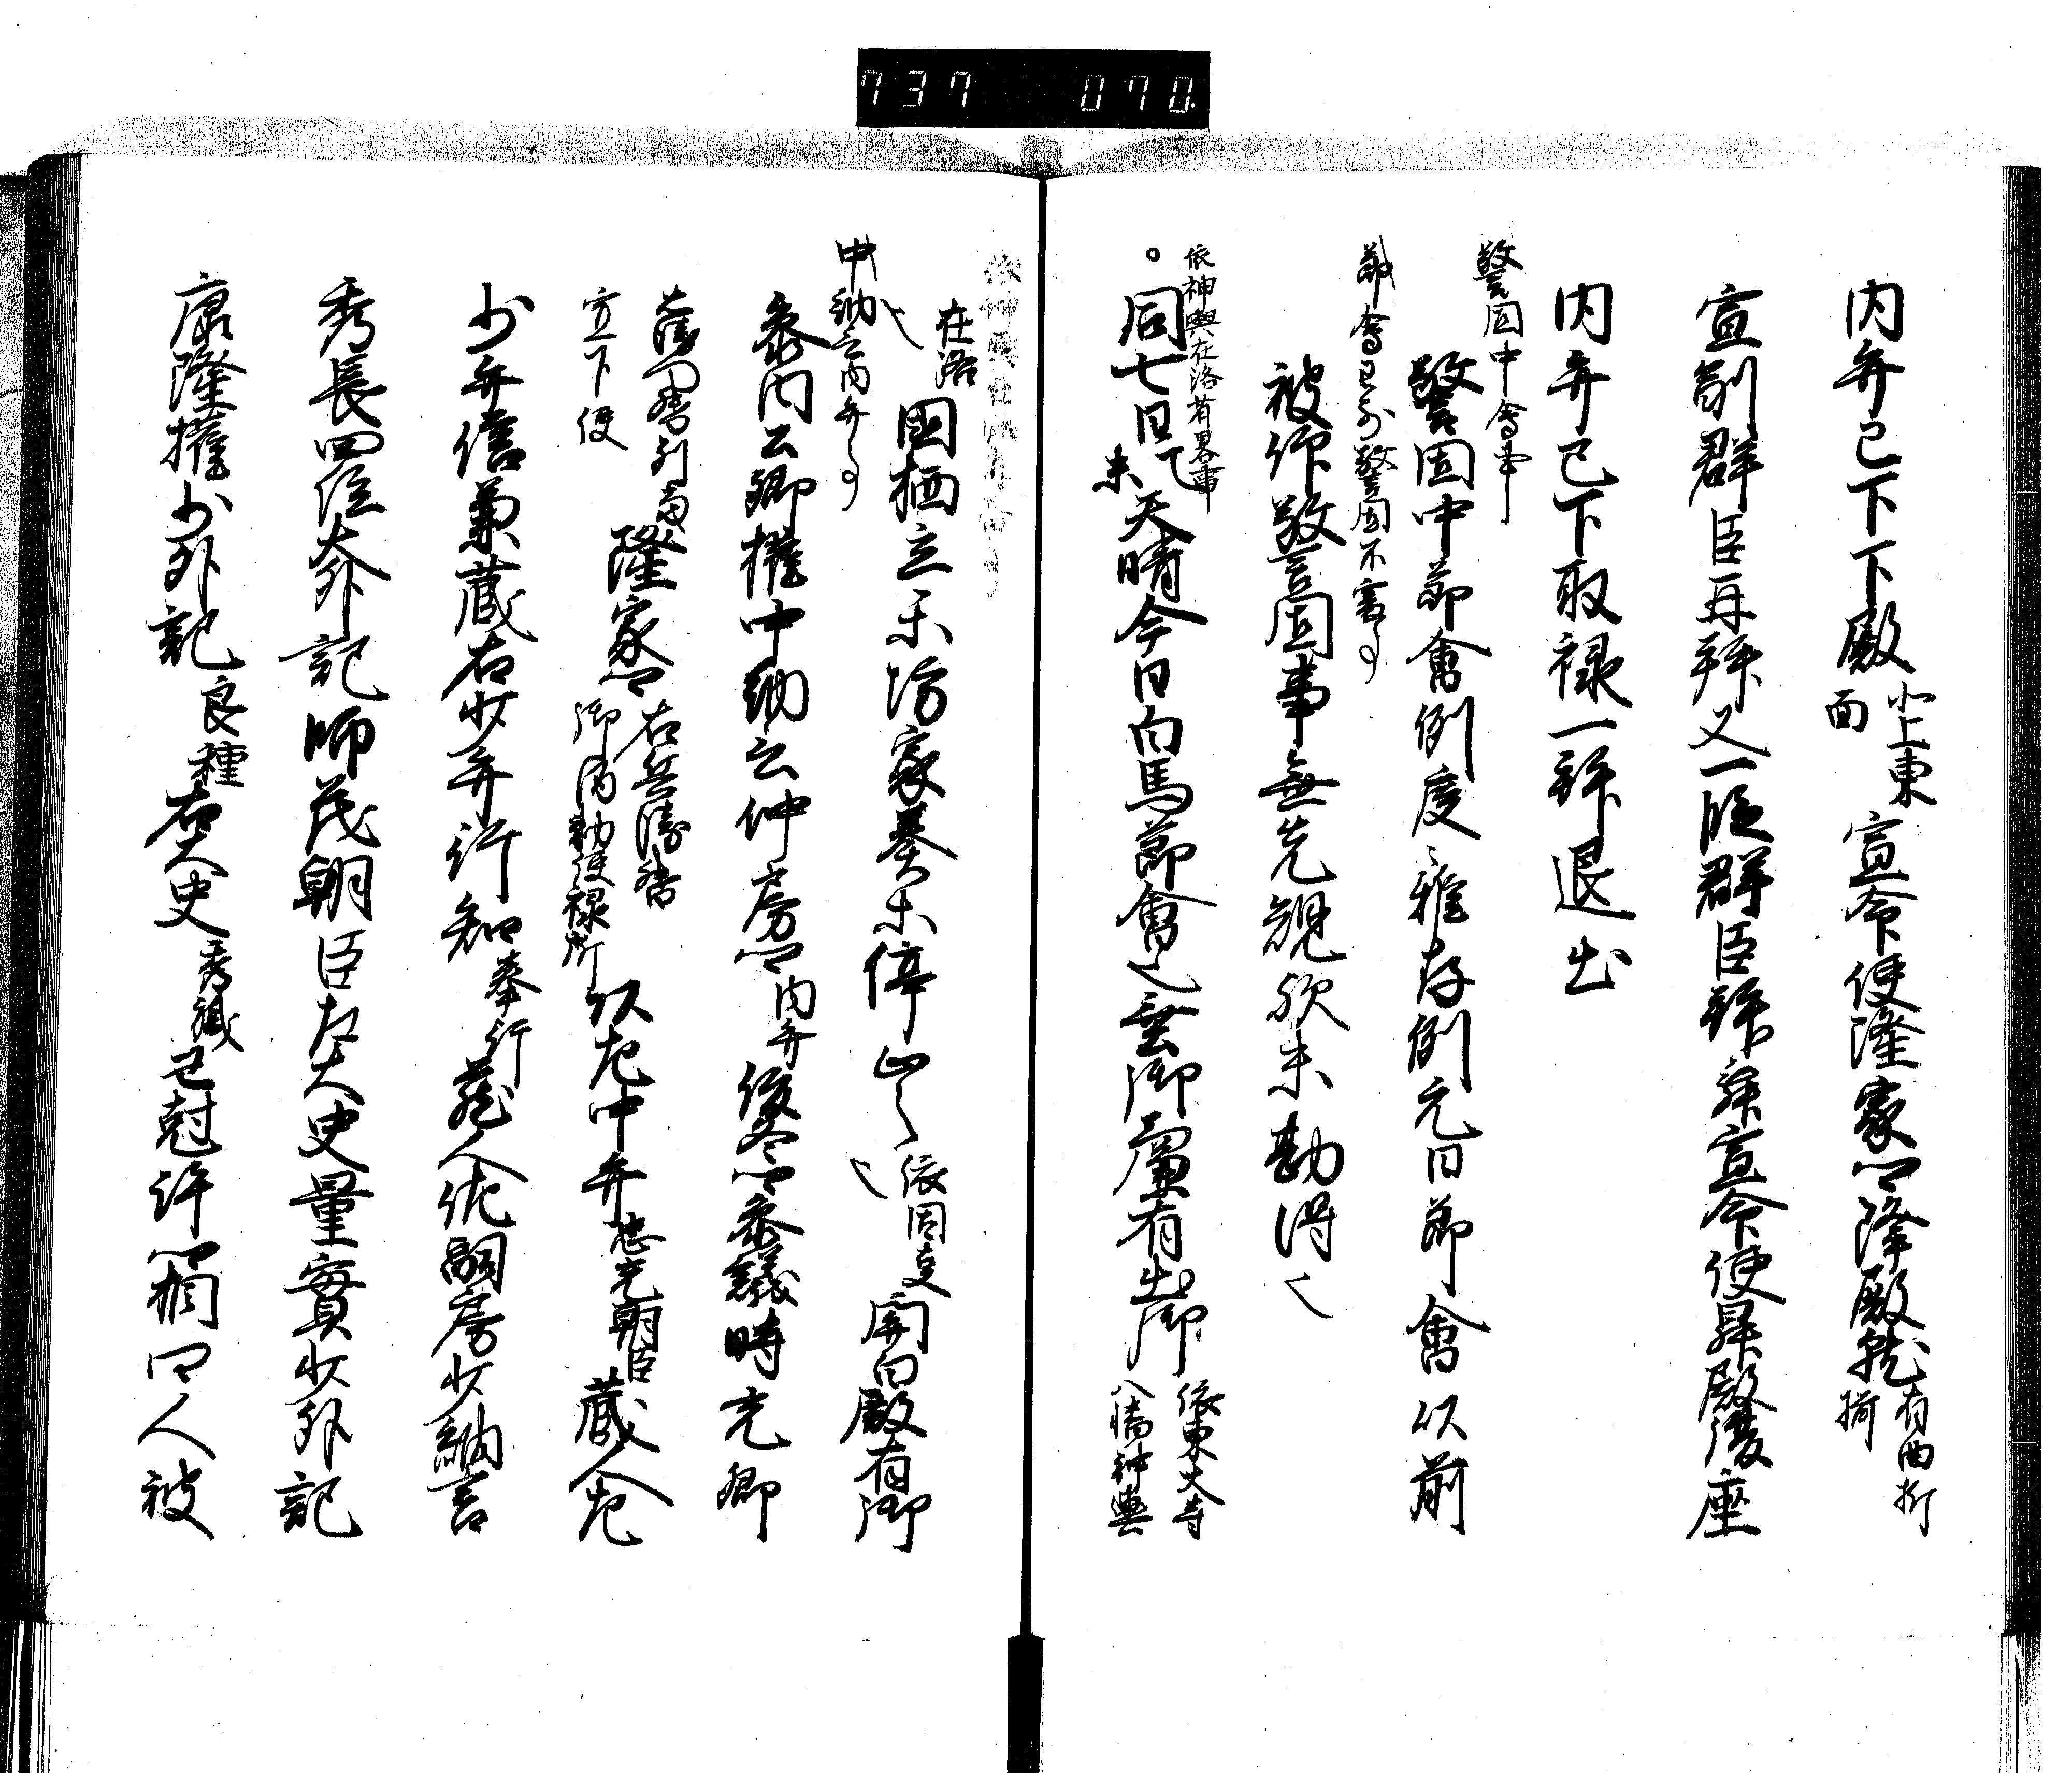 737 070.
内弁已下下殿 北上東面 宣命使隆家卿降殿就 有曲折揖
宣制群臣再拝又一段群臣拝舞宣命使昇殿復座
内弁已下取禄一拝退出
警固中會事
警固中節會例度々雖存例元日節會以前
節會已前警固不審事
被仰警固事無先規歟未勘得之
依神輿在洛有畧事
同七日 未 天晴今日白馬節會也無御簾有出御 依東大寺八幡神輿
在洛 國栖立樂坊家奏等停止之 依同支 関白殿有御
中納言内弁事
参内公卿権中納言仲房卿 内弁 俊冬卿参議時光卿
宣下使
隆家卿 右兵衛督 御酒勅使禄所 以左中弁 忠光朝臣 蔵人左
少弁信兼蔵右少弁行知 奉行 蔵人佐嗣房少納言
秀長四位大外記師茂朝臣左大史量實少外記
康隆権少外記 良種 右大史 秀職 已尅許 四人被